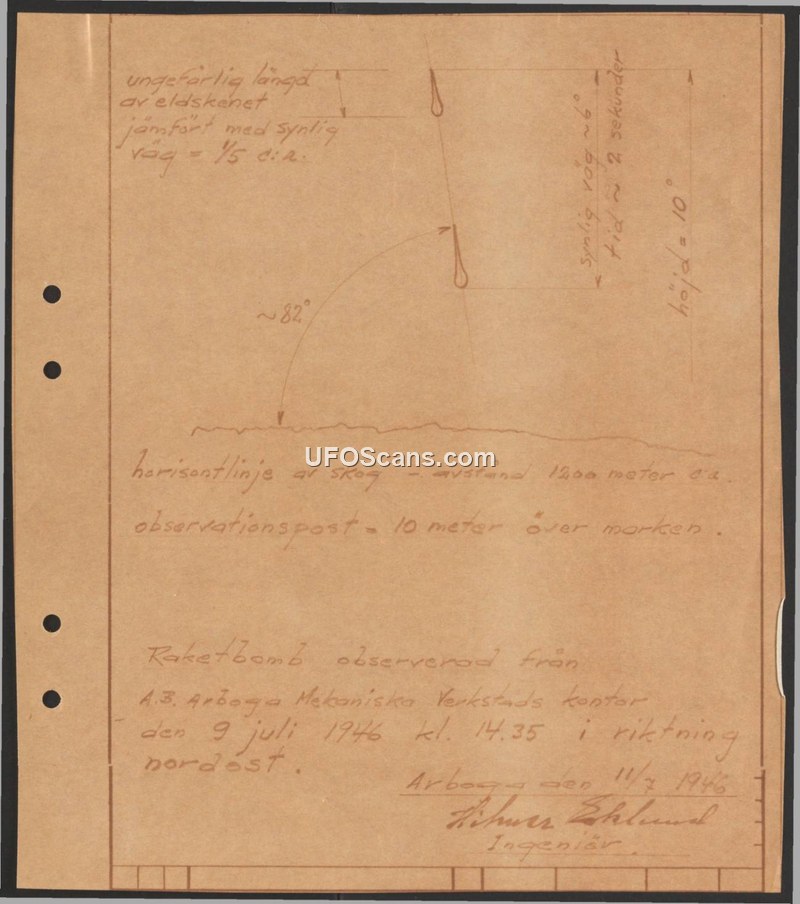 ungefärlig längd
av eldskenet
jämfört med synlig
väg = 1/5 c:a.
synlig väg ~6°
tid ~ 2 sekunder
höjd = 10°
~82°
UFOScans.com
horisontlinje av skog - avstånd 1200 meter c:a.
observationspost = 10 meter över marken.
Raketbomb observerad från
A.B. Arboga Mekaniska Verkstads kontor
den 9 juli 1946 kl. 14.35 i riktning
nordost.
Arboga den 11/7 1946
Eklund
Ingeniör